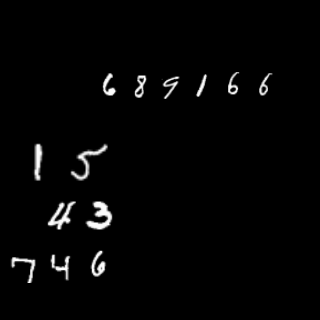 689166
15
43
746